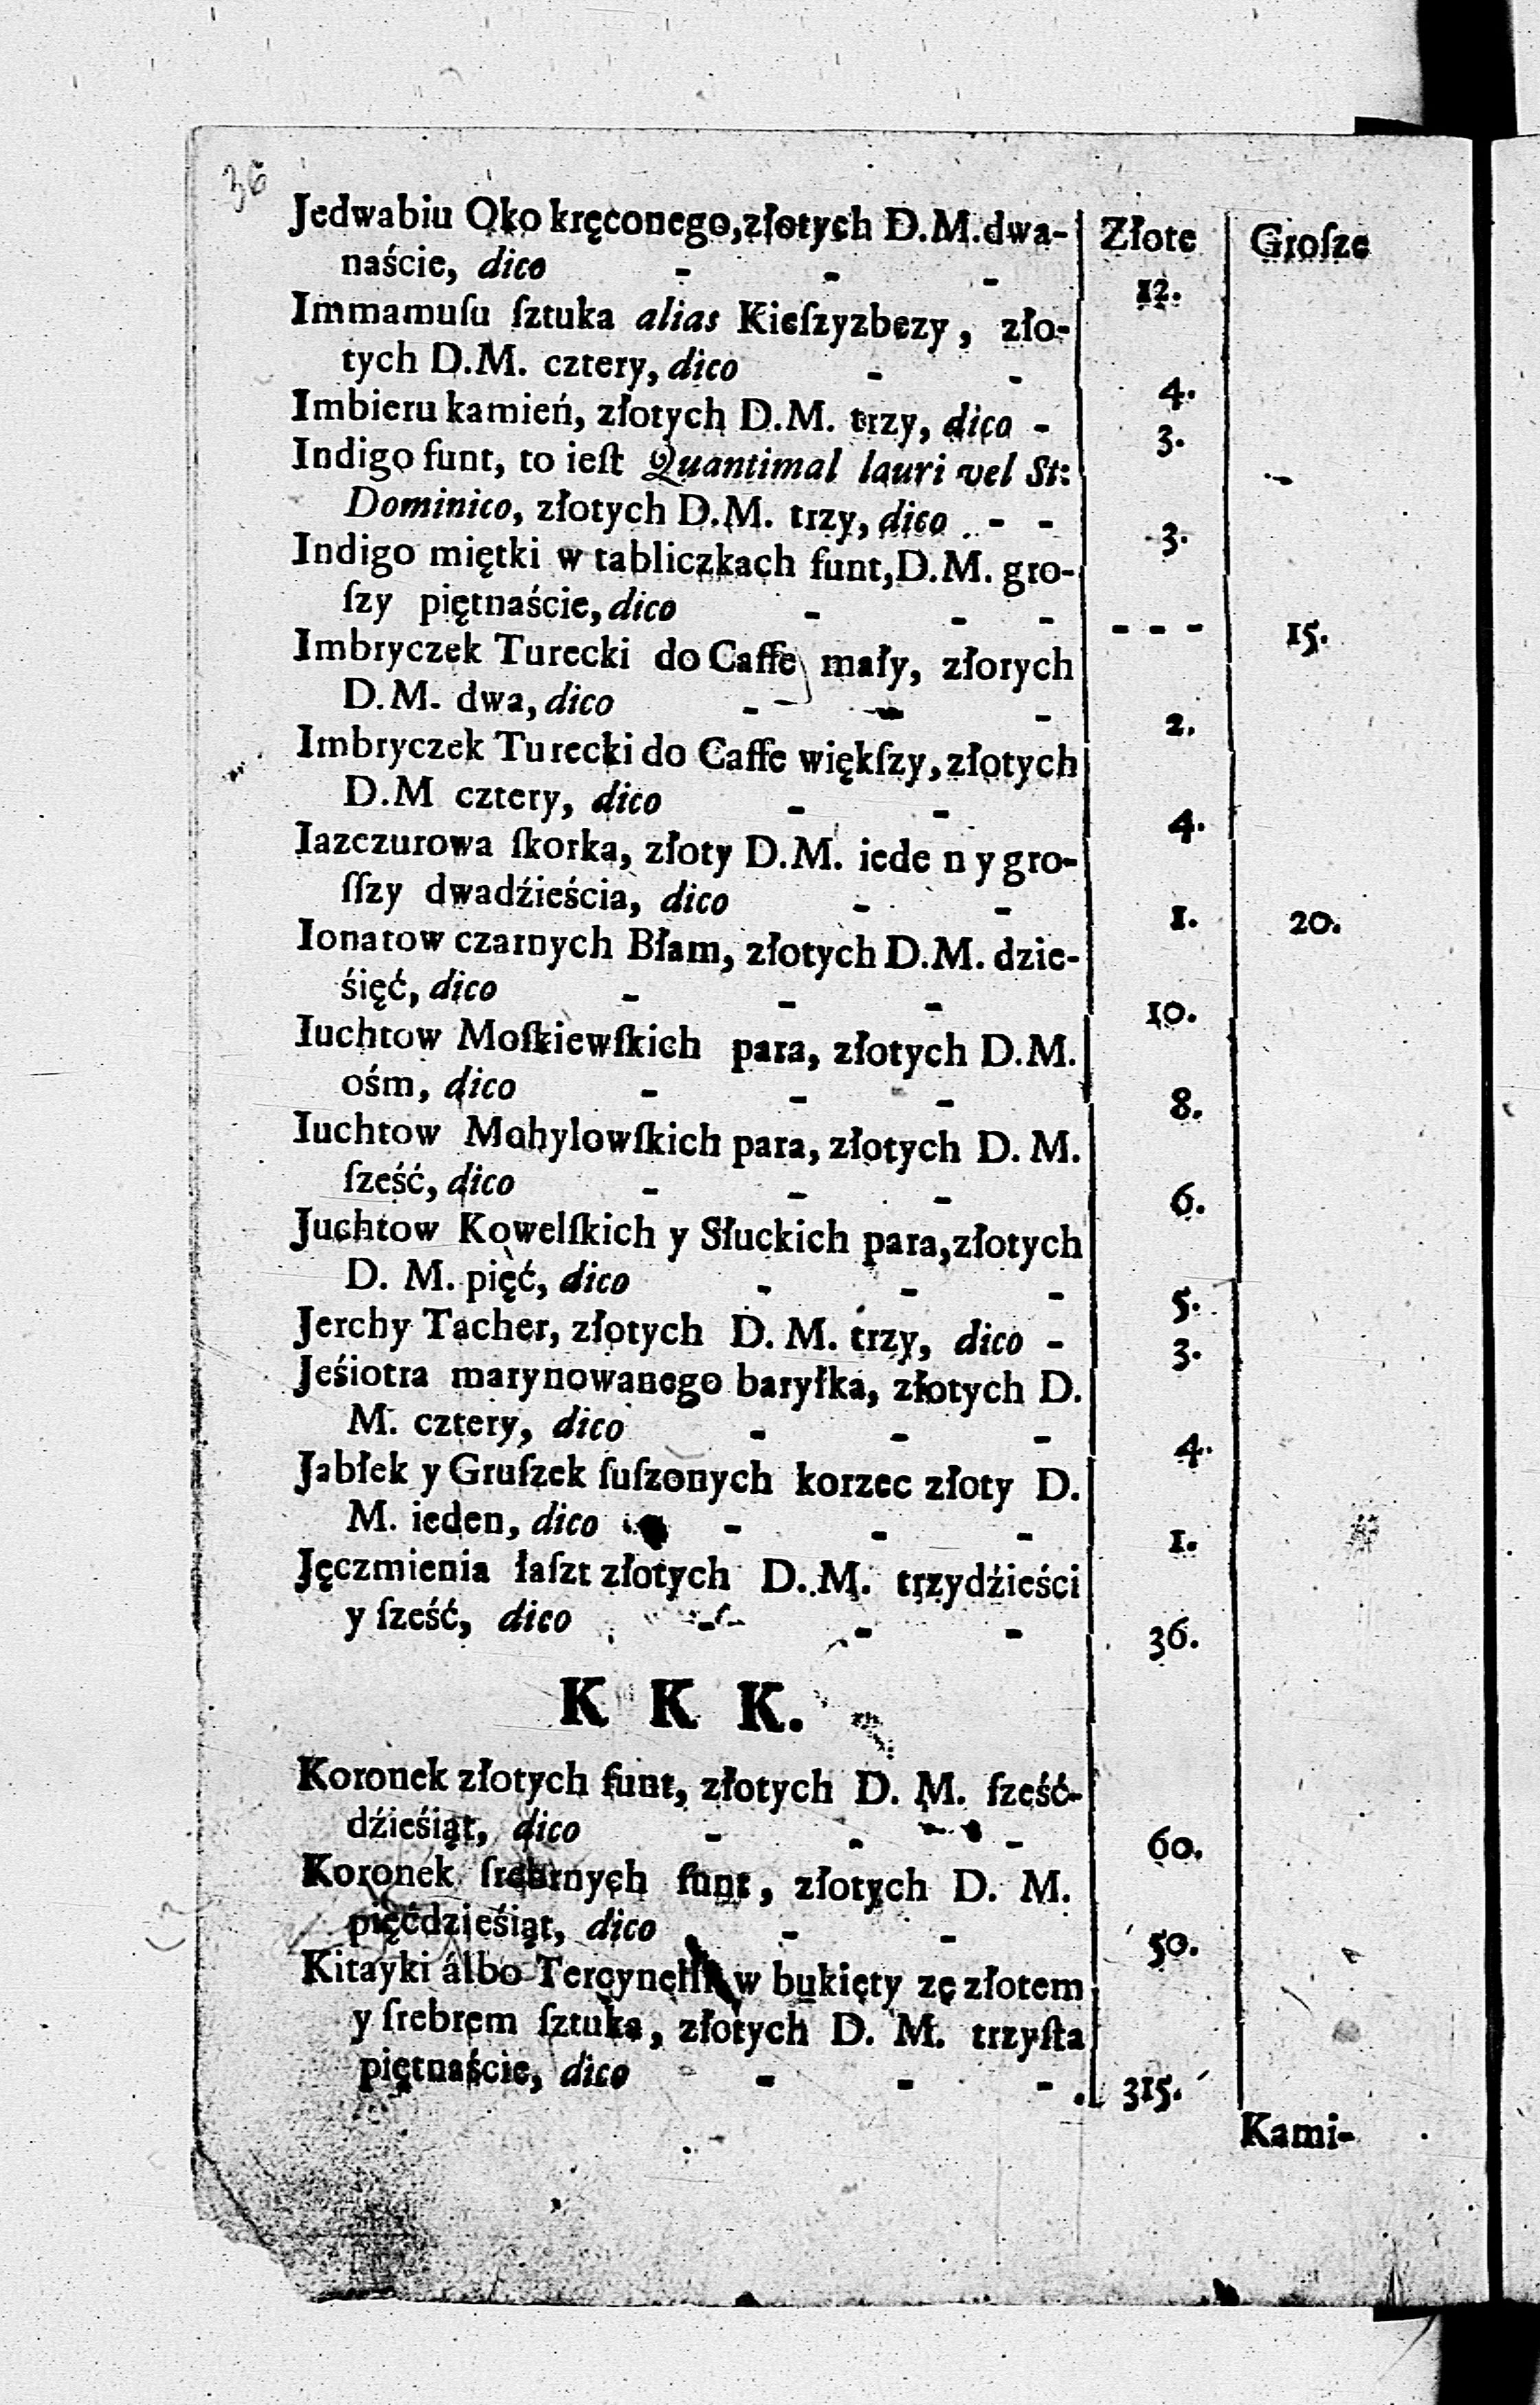 36
Jedwabiu Oko kręconego, złotych D.M. dwa- | Złote | Groſze
naście, dico - - - 12.
Immamuſu ſztuka alias Kieſzyzbezy, zło-
tych D.M. cztery, dico - - 4.
Imbieru kamień, złotych D.M. trzy, dico - 3.
Indigo funt, to ieſt Quantimal lauri vel St:
Dominico, złotych D.M. trzy, dico - - 3.
Indigo miętki w tabliczkach funt, D.M. gro-
ſzy piętnaście, dico - - - - - - 15.
Imbryczek Turecki do Caffe mały, złorych
D.M. dwa, dico - - - 2.
Imbryczek Turecki do Caffe więkſzy, złotych
D.M cztery, dico - - 4.
Iazczurowa ſkorka, złoty D.M. iede n y gro-
ſſzy dwadźieścia, dico - - 1. 20.
Ionatow czarnych Błam, złotych D.M. dzie-
śięć, dico - - - 10.
Iuchtow Moſkiewſkich para, złotych D.M.
ośm, dico - - - 8.
Iuchtow Mohylowſkich para, złotych D. M.
ſześć, dico - - - 6.
Juchtow Kowelſkich y Słuckich para, złotych
D. M. pięć, dico - - - 5.
Jerchy Tacher, złotych D. M. trzy, dico - 3.
Jeśiotra marynowanego baryłka, złotych D.
M. cztery, dico - - - 4.
Jabłek y Gruſzek ſuſzonych korzec złoty D.
M. ieden, dico - - - 1.
Jęczmienia łaſzt złotych D. M. trzydźieści
y ſześć, dico - - - 36.
K K K.
Koronek złotych funt, złotych D. M. ſześć-
dźieśiąt, dico - - - 60.
Koronek ſrebrnych funt, złotych D. M.
pięćdzieśiąt, dico - - 50.
Kitayki álbo w bukięty zę złotem
y ſrebrem ſztuka, złotych D. M. trzyſta
piętnaście, dico - - - 315.
Kami-